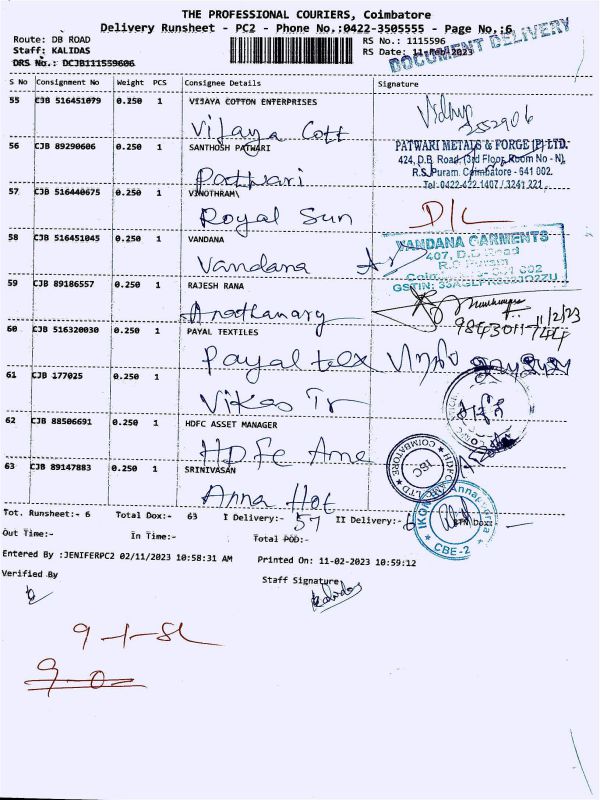 THE PROFESSIONAL COURIERS, Coimbatore
Delivery Runsheet - PC2 - Phone No.:0422-3505555 - Page No.:6
Route: DB ROAD
RS No.: 1115596
Staff: KALIDAS
RS Date: 11-Feb-2023
DOCUMENT DELIVERY
DRS No.: DCJB111559606
S No Consignment No Weight PCS Consignee Details Signature
55 CJB 516451079 0.250 1 VIJAYA COTTON ENTERPRISES
Vijaya Cott
56 CJB 89290606 0.250 1 SANTHOSH PATWARI
PATWARI METALS & FORGE (P) LTD.
424, D.B. Road, (3rd Floor, Room No - N),
R.S. Puram. Coimbatore - 641 002.
Tel: 0422-422 1407 / 3241 221
Patwari
57 CJB 516440675 0.250 1 VINOTHRAM
Royal Sun D/L
58 CJB 516451045 0.250 1 VANDANA
VANDANA GARMENTS
407, D.B. Road
Vandana
59 CJB 89186557 0.250 1 RAJESH RANA
11/2/23
60 CJB 516320030 0.250 1 PAYAL TEXTILES
Payal tex
61 CJB 177025 0.250 1
Vikas Tr
62 CJB 88506691 0.250 1 HDFC ASSET MANAGER
HDFC Ame
63 CJB 89147883 0.250 1 SRINIVASAN
COIMBATORE
Anna Hot
CBE-2
Tot. Runsheet:- 6 Total Dox:- 63 I Delivery:- 57 II Delivery:- 6
Out Time:- In Time:- Total POD:-
Entered By :JENIFERPC2 02/11/2023 10:58:31 AM Printed On: 11-02-2023 10:59:12
Verified By
Staff Signature
Kalidas